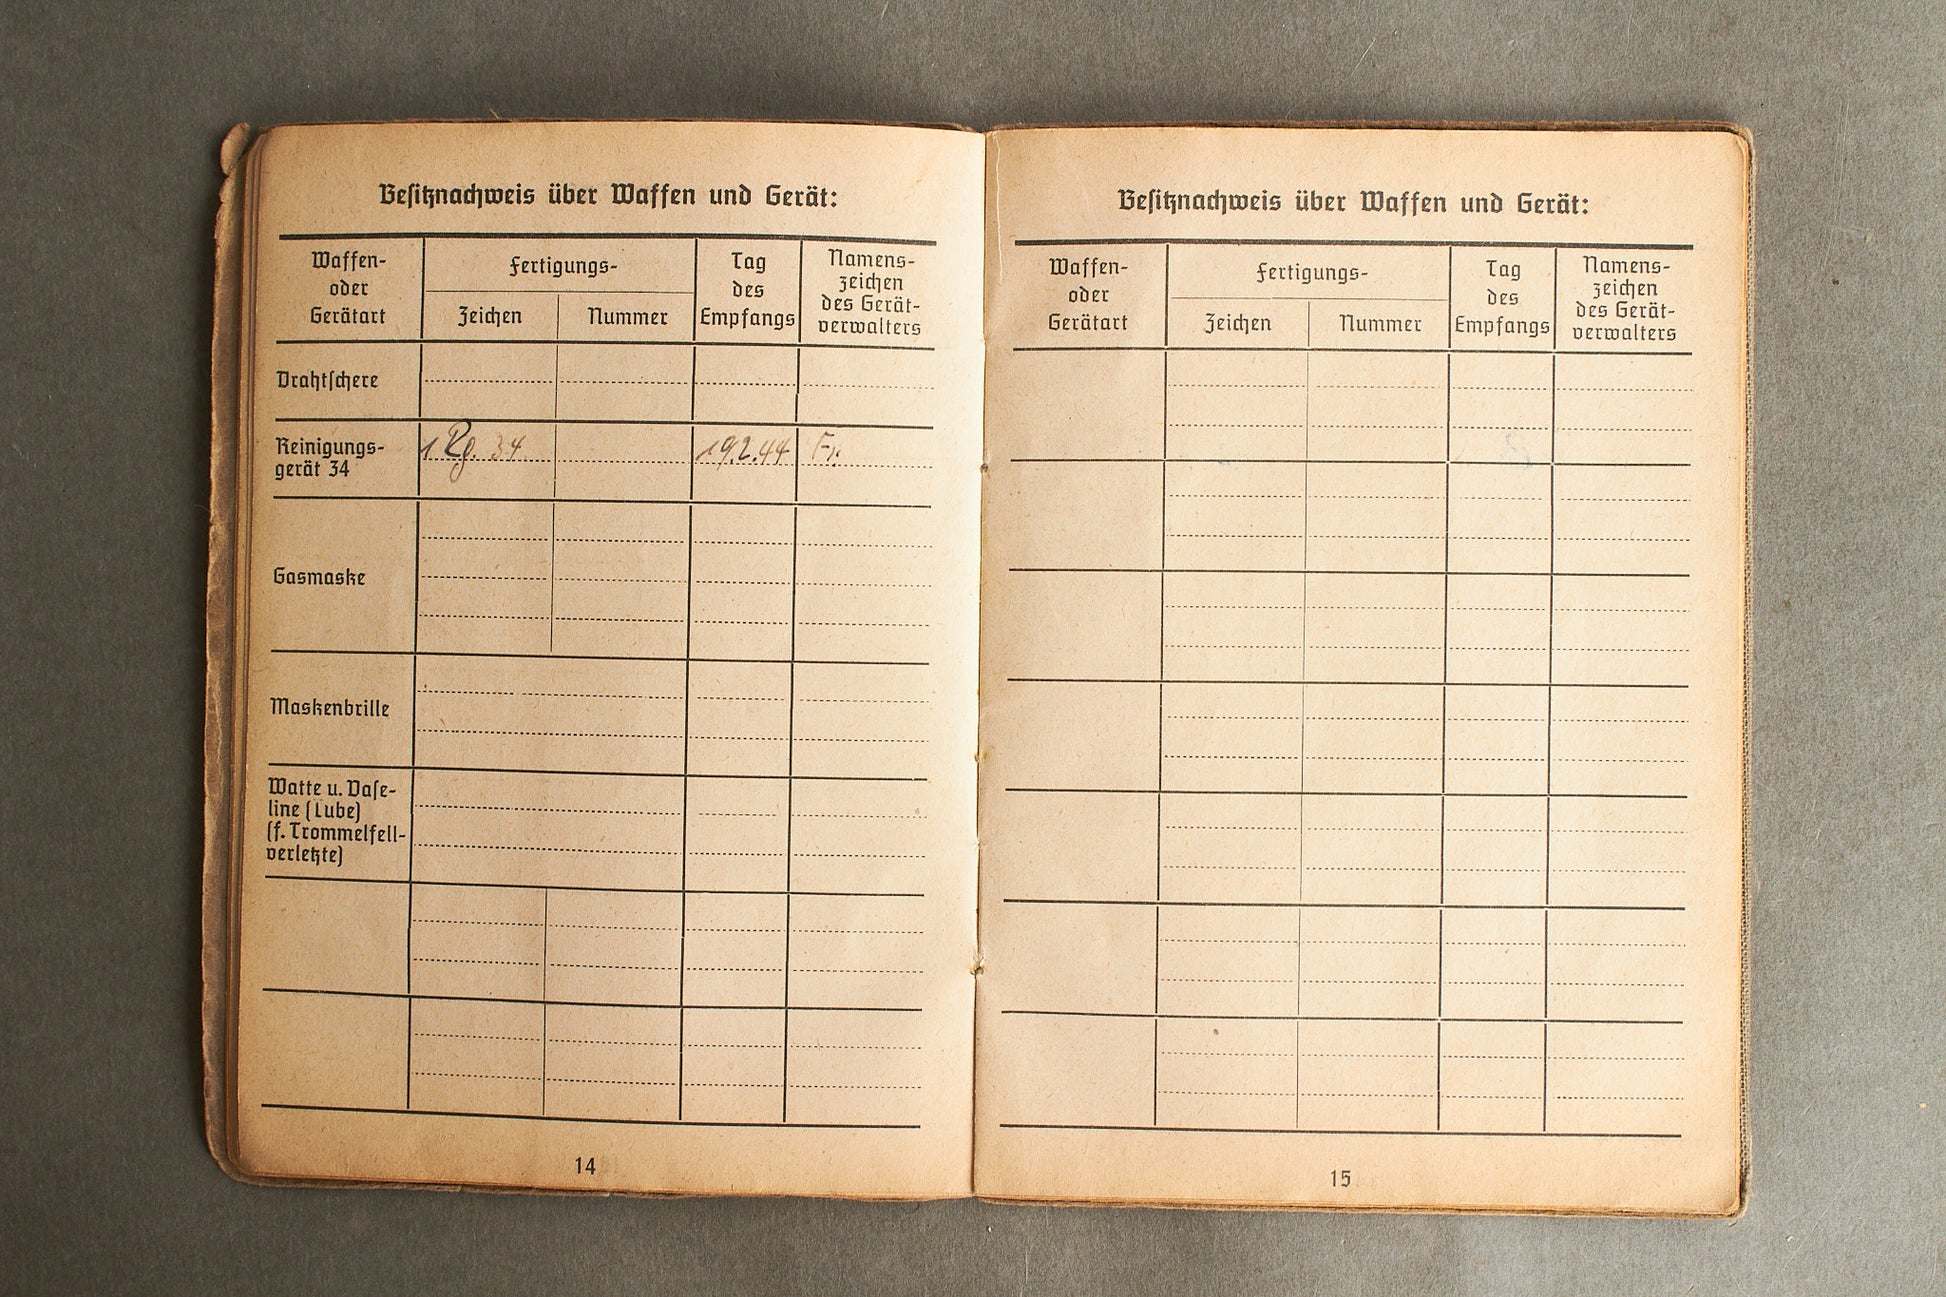 Besitznachweis über Waffen und Gerät:
Waffen-
oder
Gerätart
Fertigungs-
Zeichen
Nummer
Tag
des
Empfangs
Namens-
zeichen
des Gerät-
verwalters
Drahtschere
Reinigungs-
gerät 34
1 Rg. 34
19.2.44
Fr.
Gasmaske
Maskenbrille
Watte u. Vase-
line (Tube)
(f. Trommelfell-
verletzte)
14
Besitznachweis über Waffen und Gerät:
Waffen-
oder
Gerätart
Fertigungs-
Zeichen
Nummer
Tag
des
Empfangs
Namens-
zeichen
des Gerät-
verwalters
15